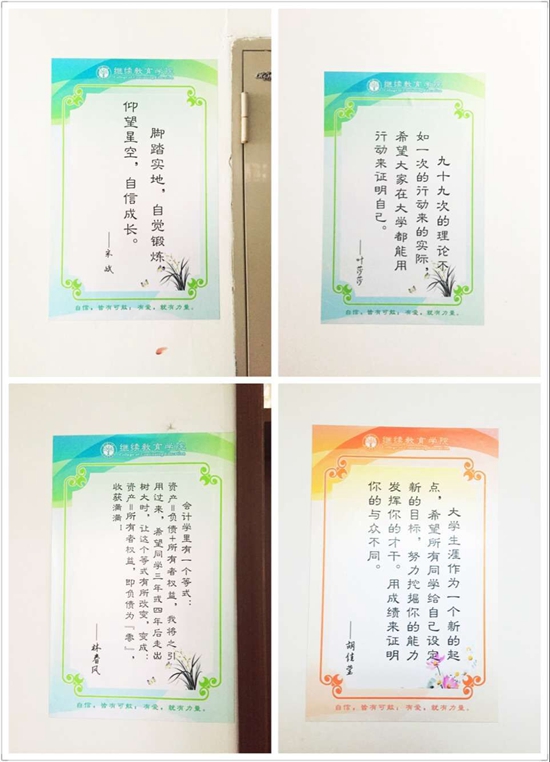 继续教育学院
脚踏实地，自觉锻炼，
仰望星空，自信成长。
自信，皆有可能；有爱，就有力量。
继续教育学院
九十九次的理论不
如一次的行动来的实际，
希望大家在大学都能用
行动来证明自己。
——叶莎莎
自信，皆有可能；有爱，就有力量。
继续教育学院
会计学里有一个等式：
资产=负债+所有者权益，我将之引
用过来，希望同学三年或四年后走出
树大时，让这个等式有所改变，变成：
资产=所有者权益，即负债为“零”，
收获满满！
——林春风
自信，皆有可能；有爱，就有力量。
继续教育学院
大学生涯作为一个新的起
点，希望所有同学给自己设定
新的目标，努力挖掘你的能力
发挥你的才干。用成绩来证明
你的与众不同。
——胡佳莹
自信，皆有可能；有爱，就有力量。